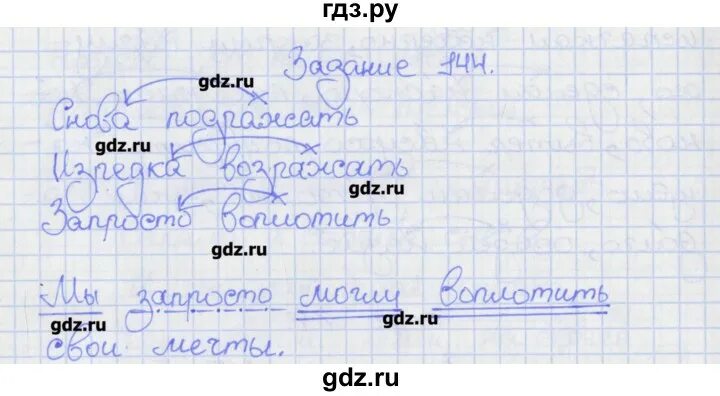 гдз.ру
Задание 144.
gdz.ru
Снова подражать
gdz.ru
Изредка возражать
gdz.ru
Запросто воплотить
gdz.ru
Мы запросто могли воплотить
gdz.ru gdz.ru
свои мечты.
gdz.ru